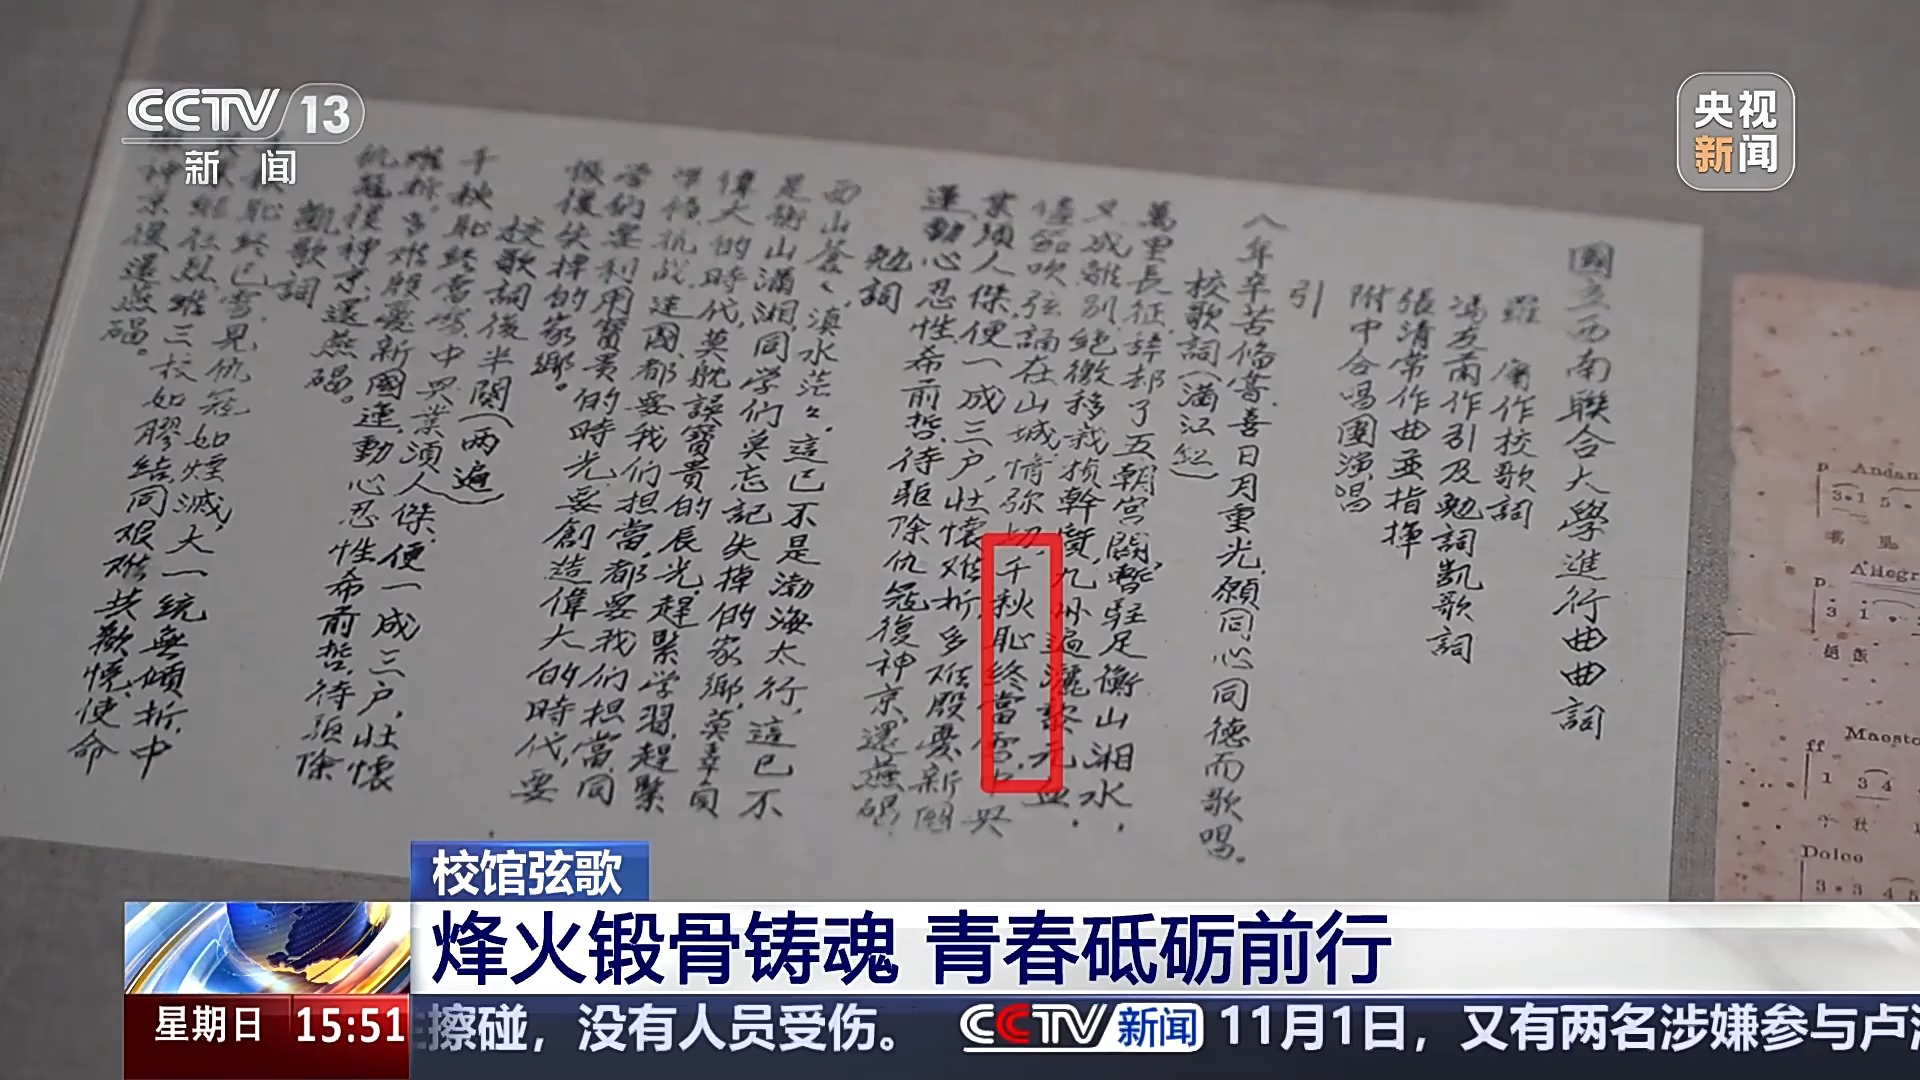 CCTV 13
新闻
央视
新闻
國立西南聯合大學進行曲曲詞
羅庸作校歌詞
馮友蘭作引及勉詞凱歌詞
張清常作曲並指揮
附中合唱團演唱
引
八年辛苦備嘗,喜日月重光,願同心同德而歌唱。
校歌詞(滿江紅)
萬里長征,辭却了五朝宮闕,暫駐足衡山湘水,
又成離別,絕徼移栽楨幹質,九州遍灑黎元血。
儘笳吹弦誦在山城,情弥切,千秋恥,終當雪,中興
業,須人傑,便一成三户,壯懷难折,多难殷憂新國
運,動心忍性希前哲,待驅除仇寇復神京,還燕碣。
勉詞
西山蒼々,滇水茫々,這已不是渤海太行,這已不
是衡山瀟湘,同学们莫忘記失掉的家鄉,莫辜負
偉大的時代,莫耽誤寶貴的辰光,趕緊学習,趕緊
準備,抗战建國,都要我们担當,都要我们担當,同
学们,要利用寶貴的時光,要創造偉大的時代,要
恢復失掉的家鄉。
校歌詞後半闋(两遍)
千秋恥,終當雪,中興業,須人傑,便一成三户,壯懷
难折,多难殷憂新國運,動心忍性希前哲,待驅除
仇寇復神京,還燕碣。
凱歌詞
恥,終已雪,見仇寇如煙滅,大一統無傾折,中
繼往烈,維三校如膠結,同艱难共歡悅,使命
神京復還燕碣。
p Andan
p Allegr
ff Maesto
Dolce
校馆弦歌
烽火锻骨铸魂 青春砥砺前行
星期日 15:51
擦碰，没有人员受伤。 CCTV新闻 11月1日，又有两名涉嫌参与卢